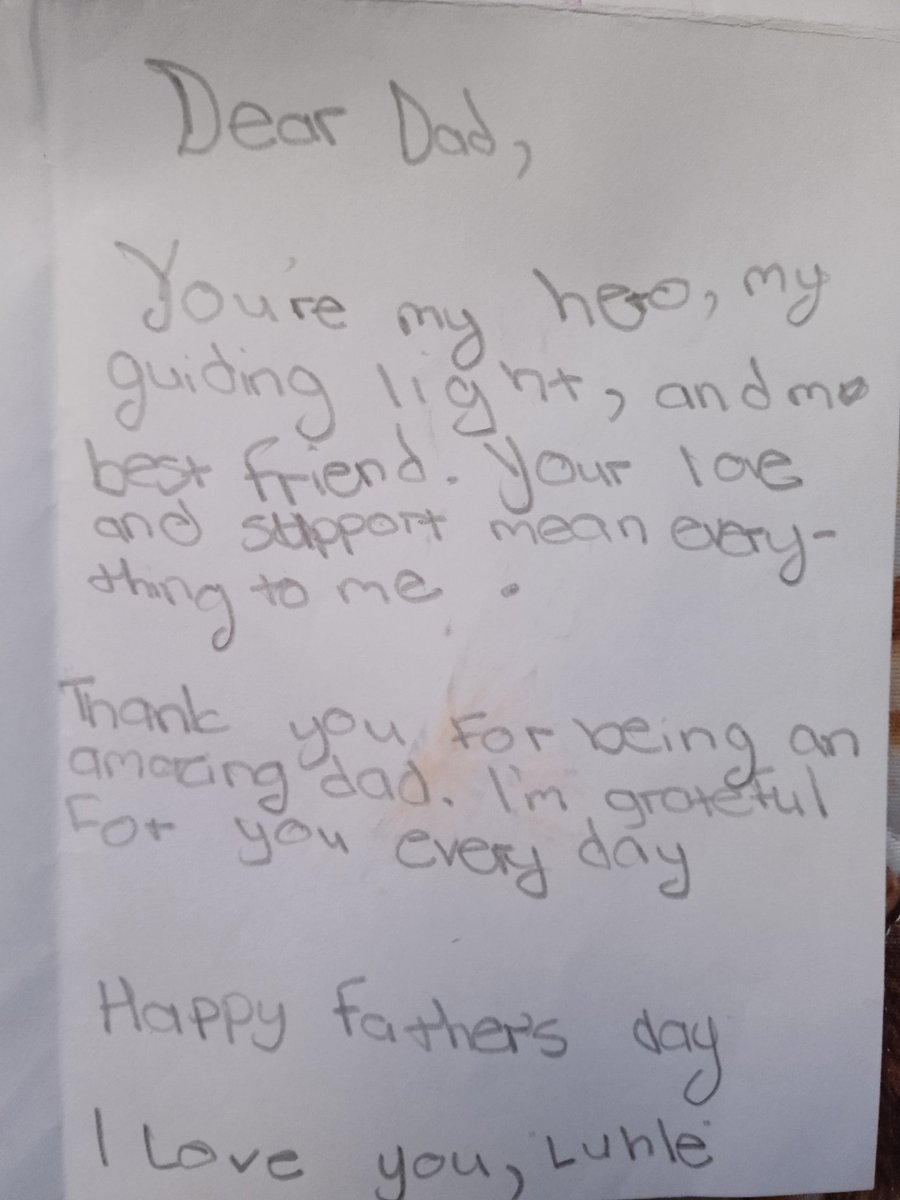 Dear Dad,
You're my hero, my
guiding light, and my
best friend. Your love
and support mean every-
thing to me.
Thank you For being an
amazing dad. I'm grateful
For you every day
Happy father's day
I Love you, Luhle